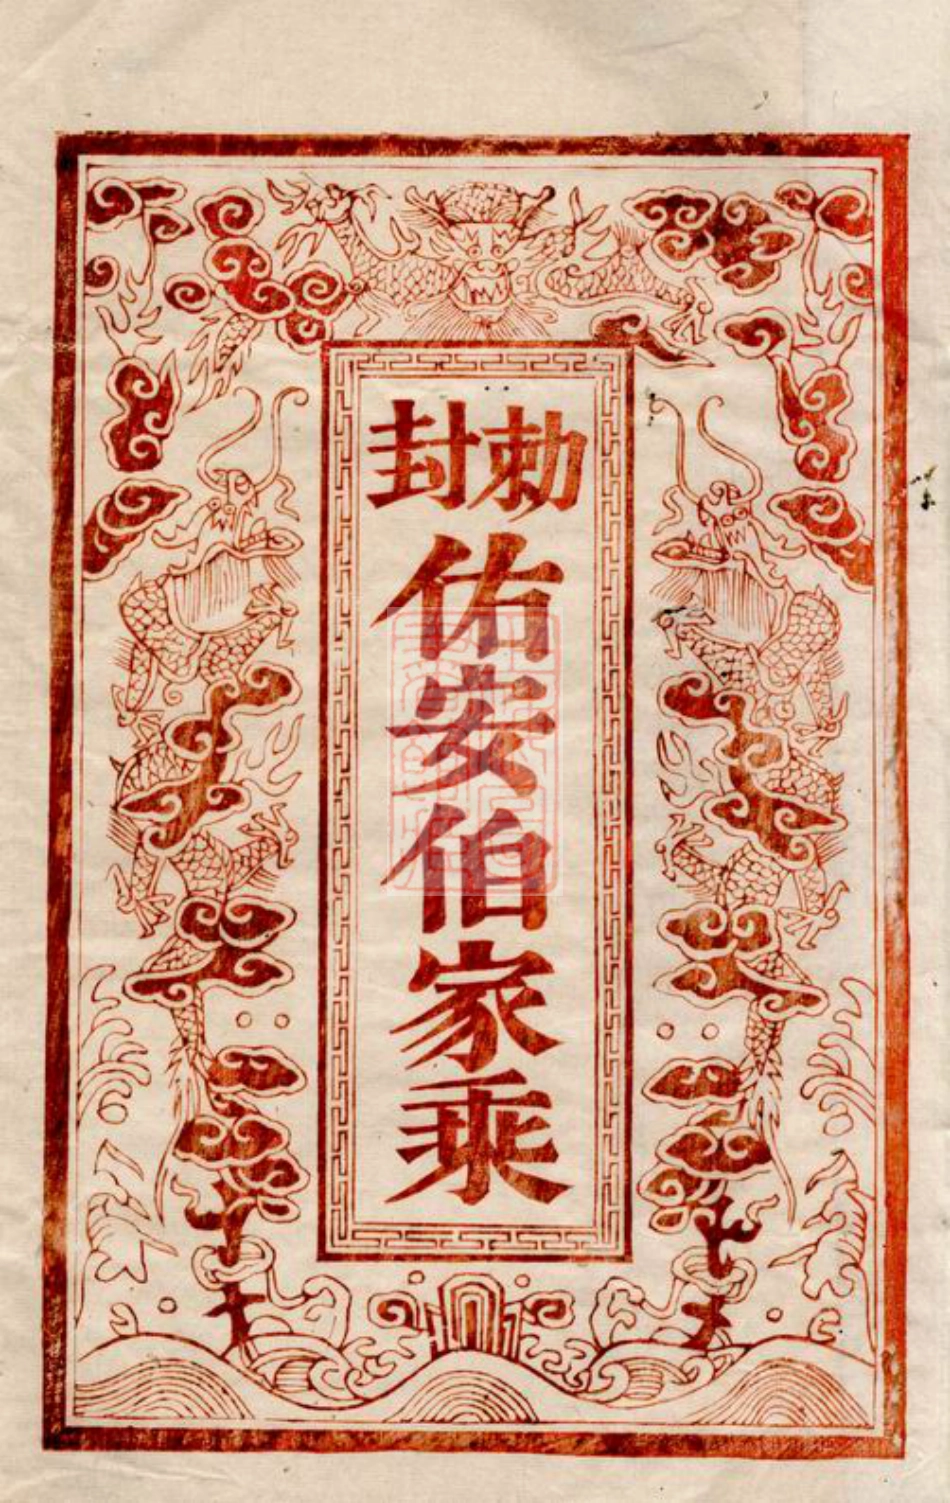 勅封
佑安伯家乘